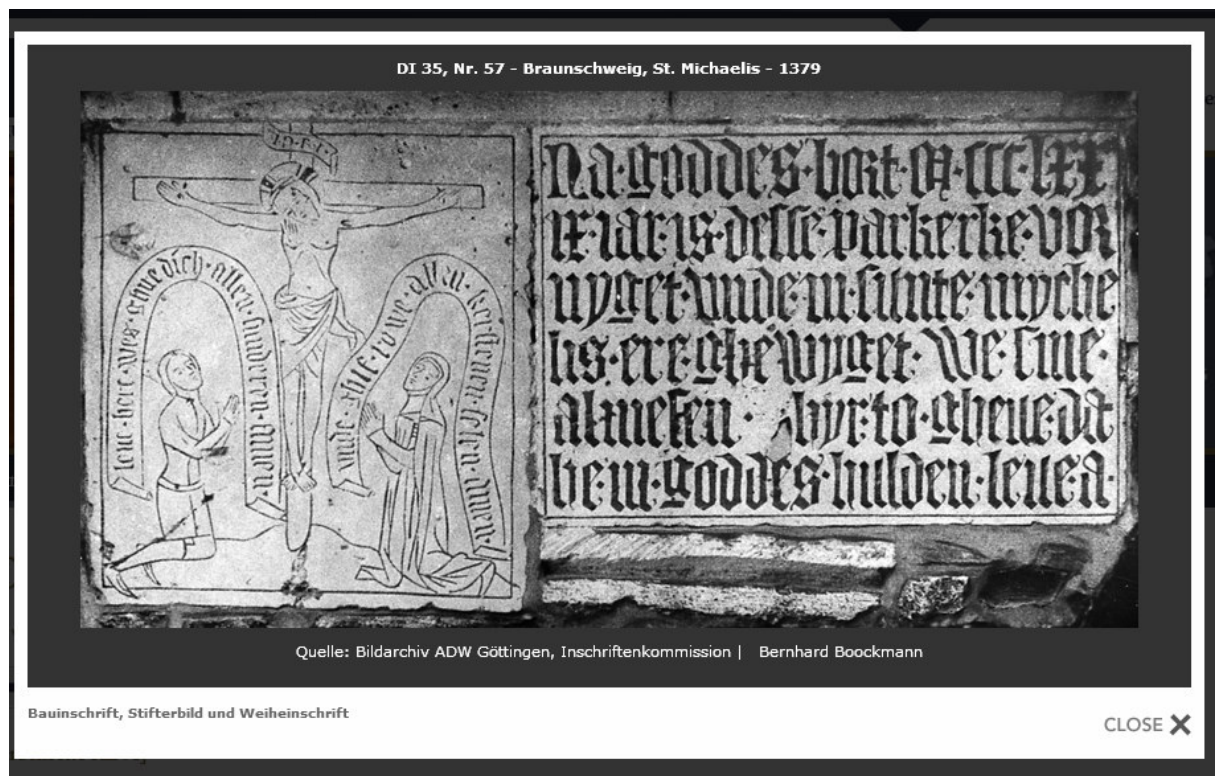 DI 35, Nr. 57 - Braunschweig, St. Michaelis - 1379
i·n·r·i
leue·here·wes·ghnedich·allen·sunderen·amen
vnde·ghif·rowe·allen·kerstenen·selen·amen
Na·goddes·bort·M·ccc·lxx
ix·iar·is·desse·parkerke·vor
nyget·vnde·in·sunte·myche
lis·ere·ghewyget·We·sine·
almesen·hyr·to·gheue·da
he·in·goddes·hulden·leue·a·
Quelle: Bildarchiv ADW Göttingen, Inschriftenkommission | Bernhard Boockmann
Bauinschrift, Stifterbild und Weiheinschrift
CLOSE X